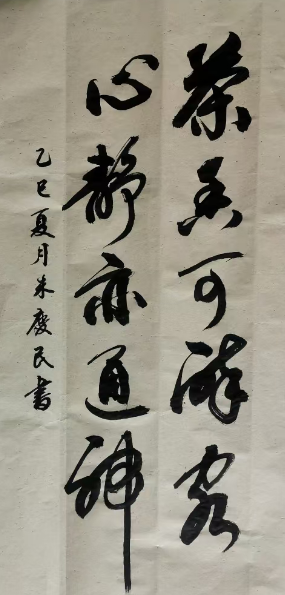 茶香可醉客
心静亦通神
乙巳夏月朱庆民书